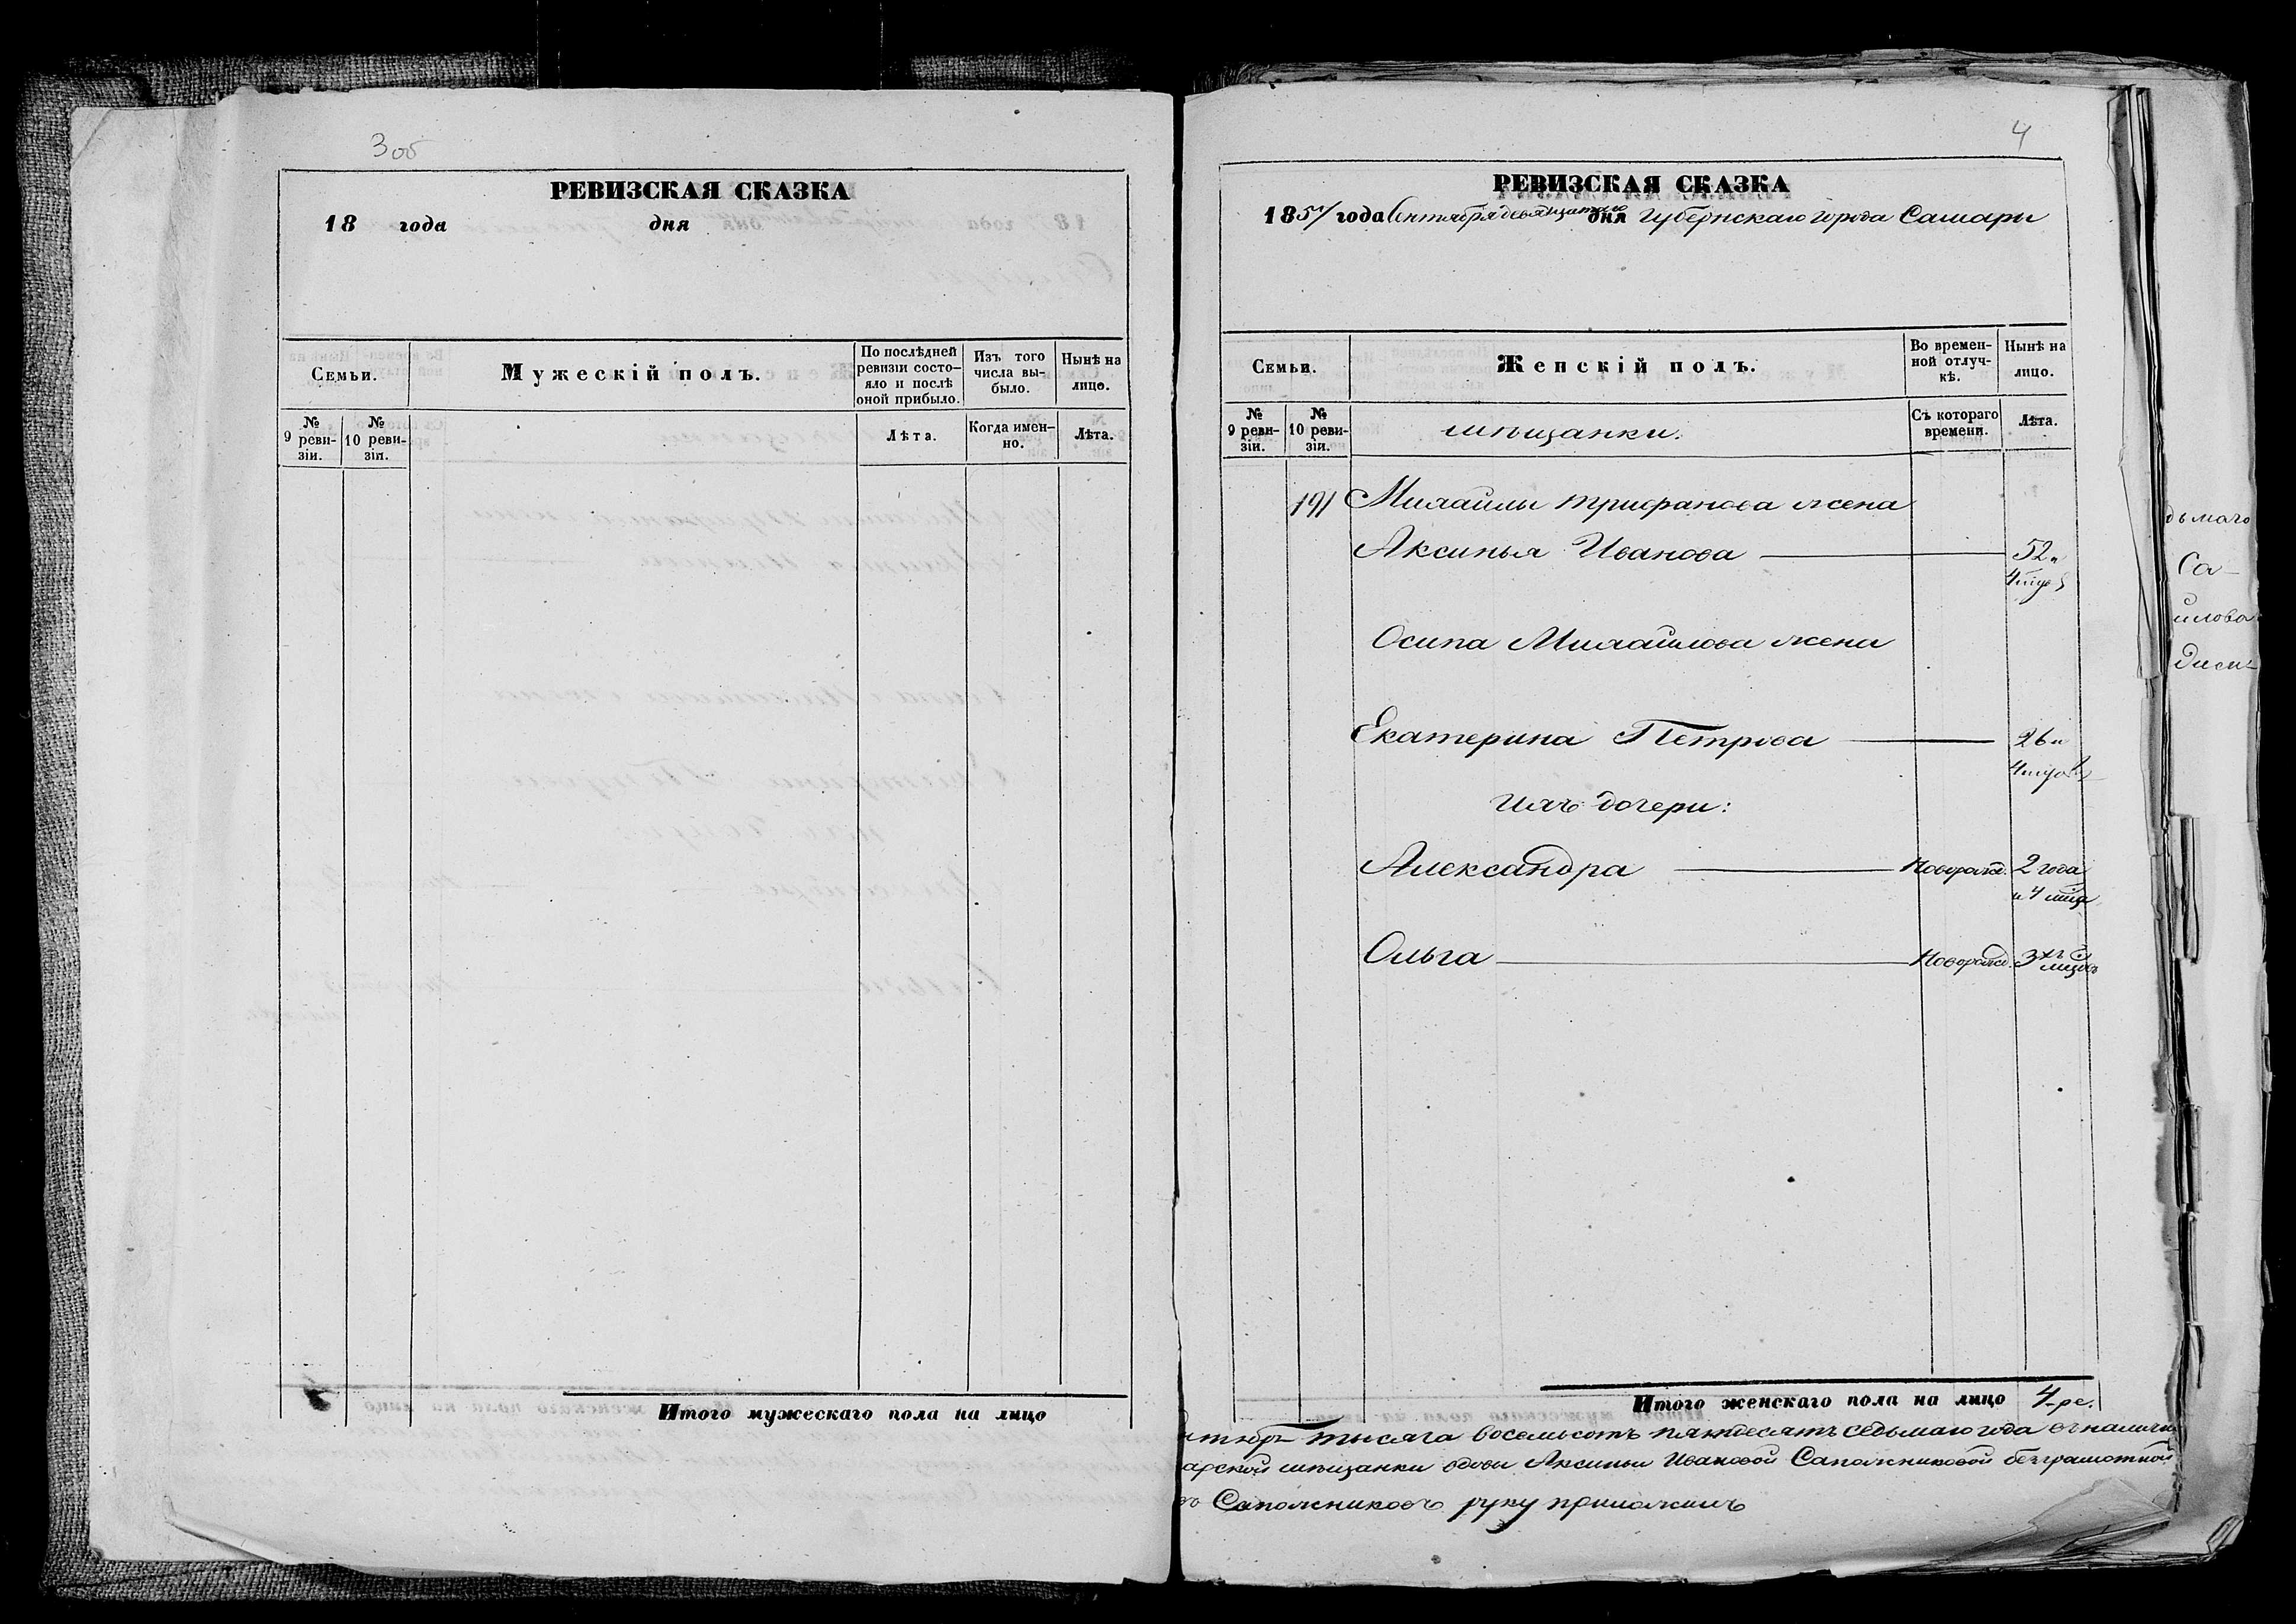 3 об
РЕВИЗСКАЯ СКАЗКА
18 года дня
Семьи.
Мужескій полъ.
По послѣдней ревизіи состо-
яло и послѣ
оной прибыло.
Изъ того
числа вы-
было.
Нынѣ на
лицо.
№
9 реви-
зіи.
№
10 реви-
зіи.
Лѣта.
Когда имен-
но.
Лѣта.
Итого мужескаго пола на лицо
4
РЕВИЗСКАЯ СКАЗКА
1857 года Сентября дня губернскаго города Самары
Семьи.
Женскій полъ.
Во времен-
ной отлуч-
кѣ.
Нынѣ на
лицо.
№
9 реви-
зіи.
№
10 реви-
зіи.
мѣщанки:
Съ котораго
времени.
Лѣта.
191 Михайлы Трифанова жена
Аксинья Иванова 52 и
Осипа Михайлова жена
Екатерина Петрова 26 и
ихъ дочери:
Александра Новорожд. 2 года
и 4 мѣся
Ольга Новорожд. 3хъ
мѣсцовъ
Итого женскаго пола на лицо 4-ре.
тысяча восемьсотъ пятьдесятъ седьмаго года
арской мѣщанки вдовы Аксиньи Ивановой Сапожниковой безграмотной
въ Сапожниковъ руку приложилъ
дьмаго
Са-
йлова